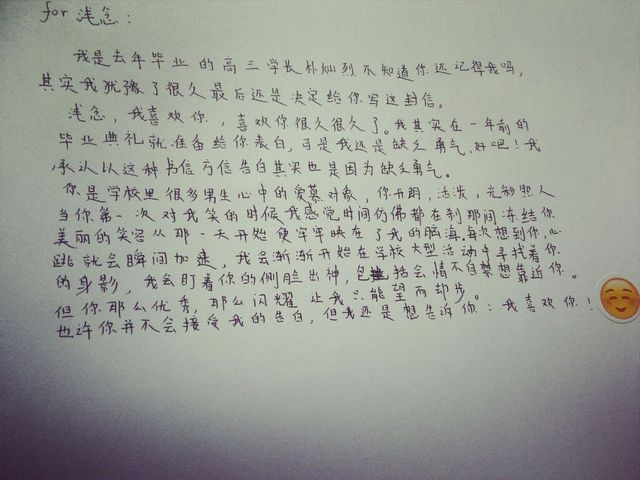 for 浅念：
我是去年毕业的高三学长朴灿烈不知道你还记得我吗，
其实我犹豫了很久最后还是决定给你写这封信。
浅念，我喜欢你，喜欢你很久很久了。我其实在一年前的
毕业典礼就准备给你表白，可是我还是缺乏勇气，好吧！我
承认以这种书信方信告白其实也是因为缺乏勇气。
你是学校里很多男生心中的爱慕对象，你开朗，活泼，光彩照人
当你第一次对我笑的时候我感觉时间仿佛都在刹那间冻结你
美丽的笑容从那一天开始便牢牢映在了我的脑海，再次想到你，心
跳就会瞬间加速，我会渐渐开始在学校大型活动中寻找着你
的身影，我会盯着你的侧脸出神，包括会情不自禁想靠近你。
但你那么优秀，那么闪耀让我只能望而却步。
也许你并不会接受我的告白，但我还是想告诉你：我喜欢你！